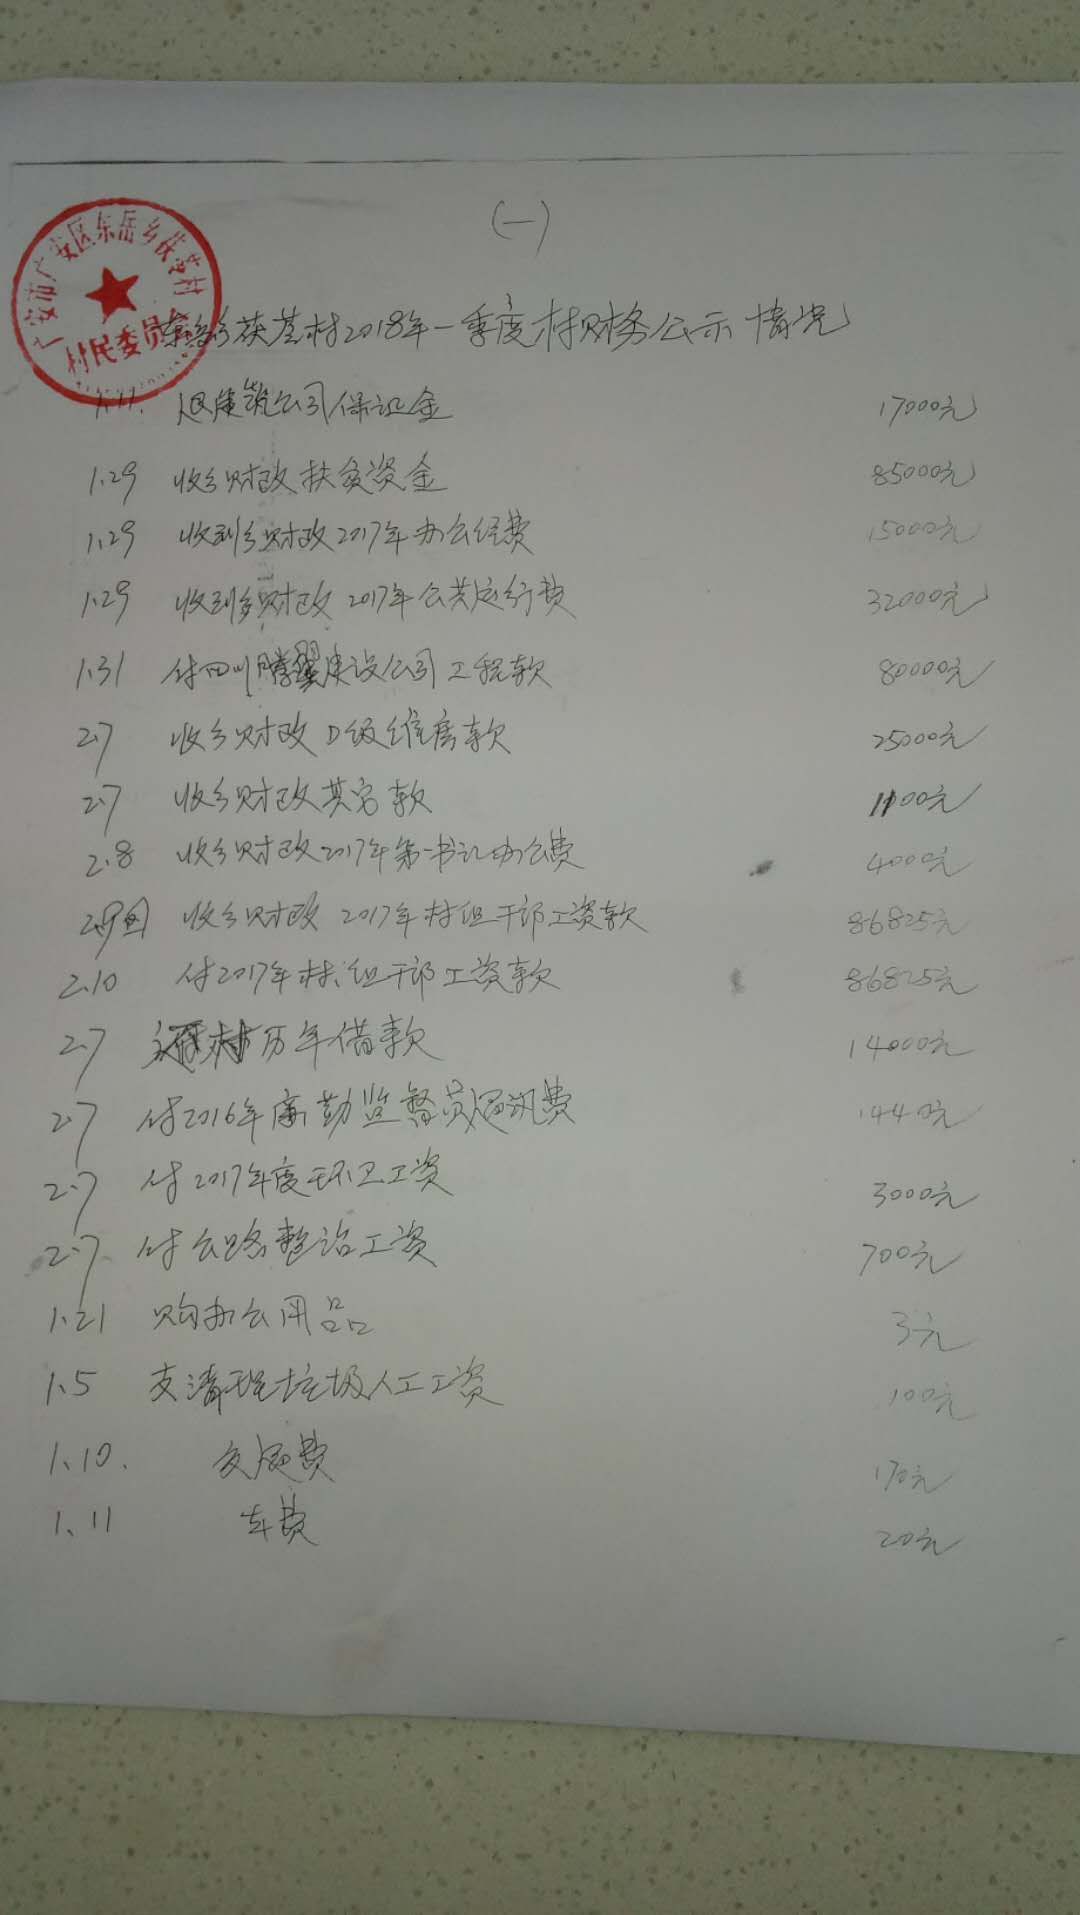 (一)
广安市广安区东岳乡茯苓村
村民委员会
东岳乡茯苓村2018年一季度村财务公示情况
1.11. 退建筑公司保证金 17000元
1.29 收乡财政扶贫资金 85000元
1.29 收到乡财政2017年办公经费 15000元
1.29 收到乡财政2017年公共运行费 32000元
1.31 付四川腾翼建设公司工程款 80000元
2.7 收乡财政D级维房款 25000元
2.7 收乡财政其它款 1100元
2.8 收乡财政2017年第一书记办公费 4000元
2.9 收乡财政2017年村组干部工资款 86825元
2.10 付2017年村、组干部工资款 86825元
2.7 历年借款 14000元
2.7 付2016年廉勤监督员通讯费 1440元
2.7 付2017年度环卫工资 3000元
2.7 付公路整治工资 700元
1.21 购办公用品 3元
1.5 支清理垃圾人工工资 100元
1.10. 交通费 170元
1.11 车费 20元